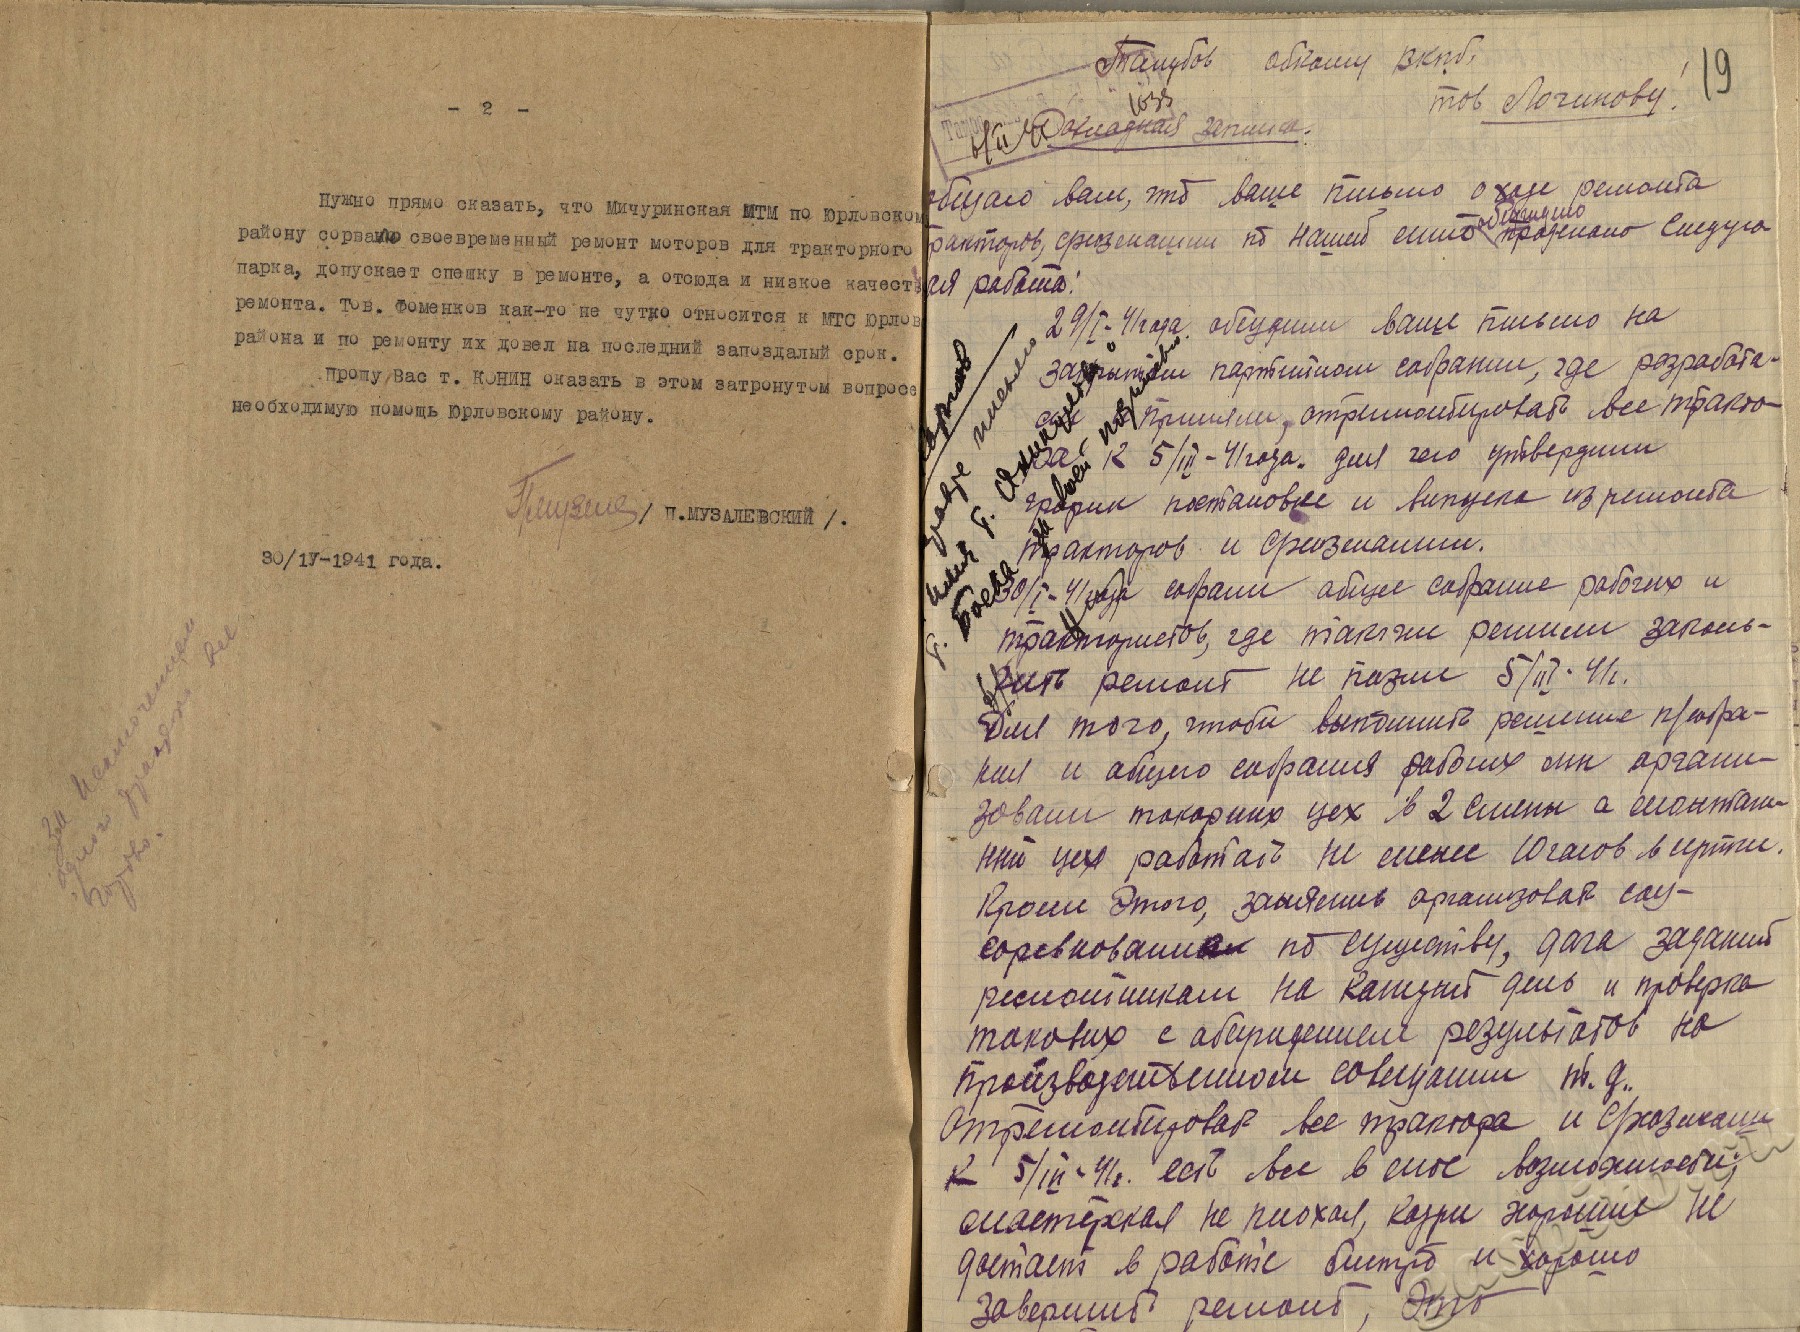 - 2 -
Нужно прямо сказать, что Мичуринская МТМ по Юрловском
району сорвало своевременный ремонт моторов для тракторного
парка, допускает спешку в ремонте, а отсюда и низкое качест
ремонта. Тов. Фоменков как-то не чутко относится к МТС Юрлов
района и по ремонту их довел на последний запоздалый срок.
Прошу Вас т. КОНИН оказать в этом затронутом вопросе
необходимую помощь Юрловскому району.
/ П.МУЗАЛЕВСКИЙ /.
30/1У-1941 года.
19
обкому ВКПб.
тов Логинову!
Докладная записка.
общаю вам, что ваше письмо о ходе ремонта
тракторов, с/хозмашин по нашей обсуждено проделано следую
ая работа:
29/I-41 года обсудили ваше письмо на
закрытом партийном собрании, где
приняли, отремонтировать все тракто-
ра к 5/III-41 года. для чего утвердили
график постановке и выпуска из ремонта
тракторов и с/хозмашин.
30/I-41 года собрали общее собрание рабочих и
трактористов, где также решили закон-
чить ремонт не позже 5/III-41г.
Для того, чтобы выполнить решение п/собра-
ния и общего собрания рабочих мы органи-
зовали токарных цех в 2 смены а монтаж-
ный цех работать не менее 10 часов в сутки.
Кроме этого, занялись организовать соц-
соревнования по существу, дача заданий
ремонтникам на каждый день и проверка
таковых с обсуждением результатов на
производственном совещании т. д..
Отремонтировать все трактора и с/хозмашин
к 5/III-41г. есть все в мтс возможности,
мастерская не плохая, кадры хорошие не
достает в работе быстро и хорошо
завершить ремонт, Это